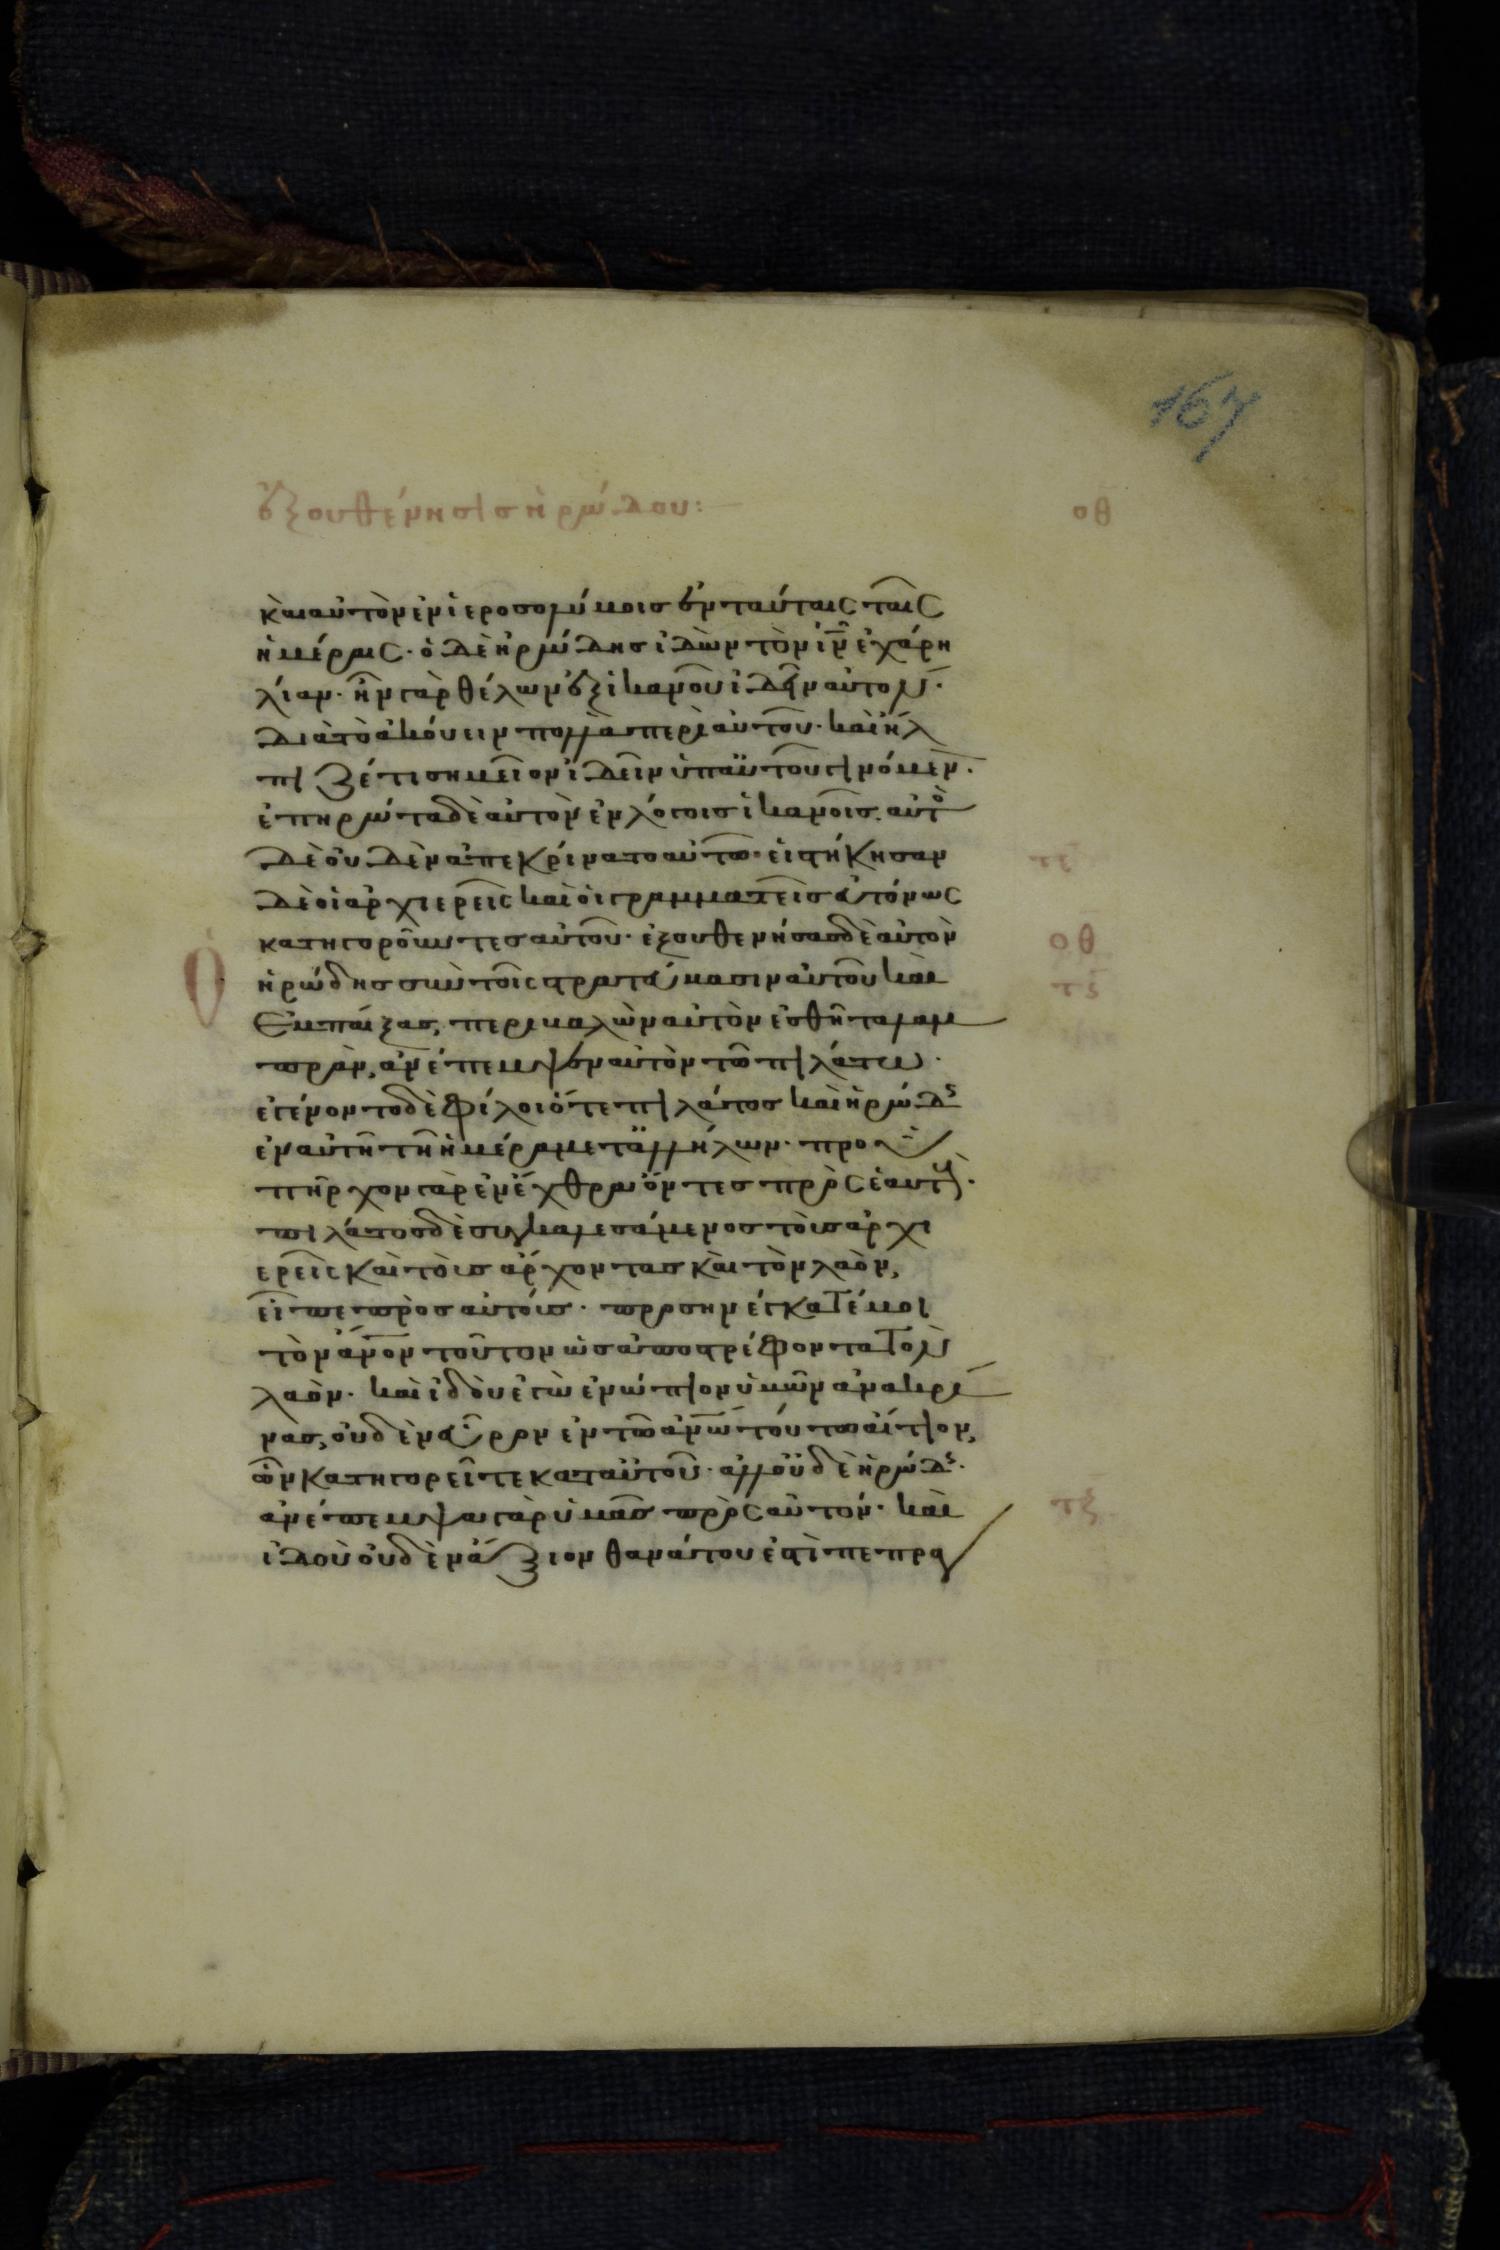 167
ἐξουθένησις ἡρώδου: οθ
καὶ αὐτὸν ἐν ἱεροσολύμοις ἐν ταύταις ταῖς
ἡμέραις· ὁ δὲ ἡρώδης ἰδὼν τὸν ἰν̅ ἐχάρη
λίαν· ἦν γὰρ θέλων ἐξ ἱκανοῦ ἰδεῖν αὐτόν·
διὰ τὸ ἀκούειν πολλὰ περὶ αὐτοῦ· καὶ ἤλ
πιζέ τι σημεῖον ἰδεῖν ὑπ αὐτοῦ γινόμεν·
ἐπηρώτα δὲ αὐτὸν ἐν λόγοις ἱκανοῖς· αὐτὸ
δὲ οὐδὲν ἀπεκρίνατο αὐτῶ· εἱστήκησαν
δὲ οἱ ἀρχιερεῖς καὶ οἱ γραμματεῖς εὐτόνως
κατηγοροῦντες αὐτοῦ· ἐξουθενήσας δὲ αὐτὸν οθ
ἡρώδης σὺν τοῖς στρατεύμασιν αὐτοῦ καὶ
ἐμπαίξας, περιβαλὼν αὐτὸν ἐσθῆτα λαμ
πρὰν, ἀνέπεμψεν αὐτὸν τῶ πιλάτω·
ἐγένοντο δὲ φίλοι ὅ τε πιλάτος καὶ ἡρώδς
ἐν αὐτῆ τῆ ἡμέρα μετ ἀλλήλων· προϋ
πῆρχον γὰρ ἐν ἔχθρα ὄντες πρὸς ἑαυτ·
πιλάτος δὲ συγκαλεσάμενος τοὺς ἀρχι
ερεῖς καὶ τοὺς ἄρχοντας καὶ τὸν λαὸν,
εἶπε πρὸς αὐτούς· προσηνέγκατέ μοι
τὸν ἄνον τοῦτον ὡς ἀποστρέφοντα τὸν
λαόν· καὶ ἰδοὺ ἐγὼ ἐνώπιον ὑμῶν ἀνακρί
νας, οὐδὲν εὗρον ἐν τῶ ἀνω τούτω αἴτιον,
ὧν κατηγορεῖτε κατ αὐτοῦ· ἀλλ οὐδὲ ἡρώδς·
ἀνέπεμψα γὰρ ὑμᾶς πρὸς αὐτόν· καὶ
ἰδοὺ οὐδὲν ἄξιον θανάτου ἐστὶ πεπρα